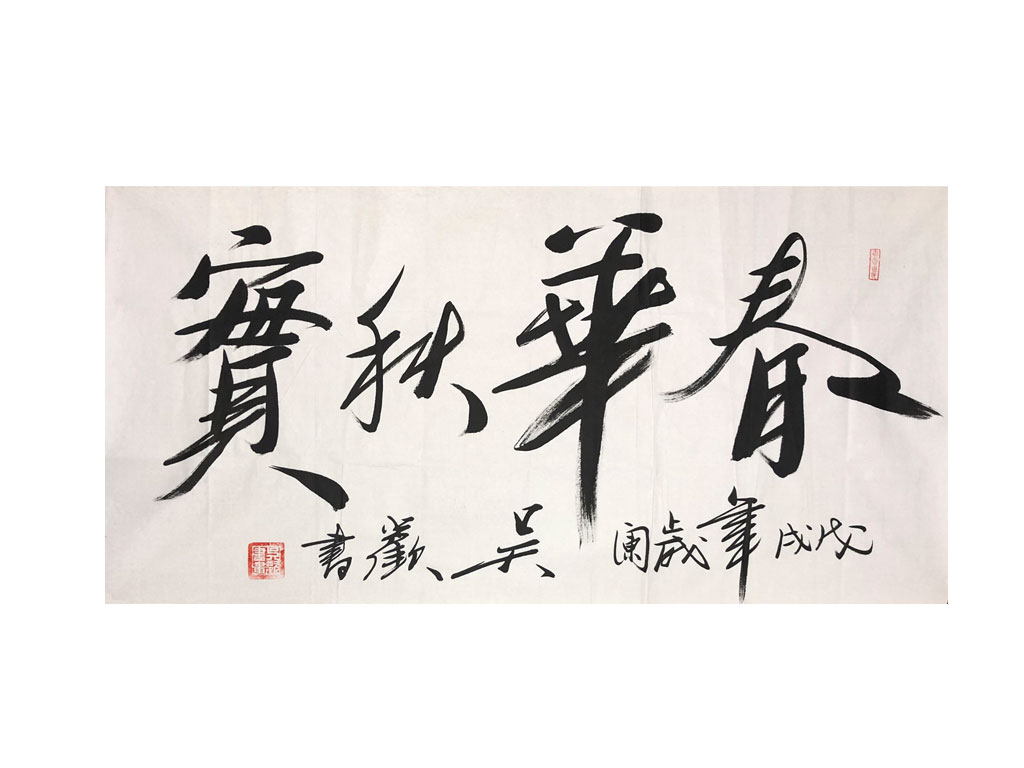 春華秋實
戊戌年歲闌吳歡書